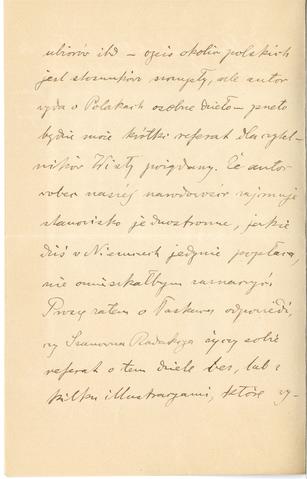 ubiorów itd – opis okolic polskich
jest stosunkowo szczupły, ale autor
wyda o Polakach osobne dzieło – przeto
będzie może krótki referat dla czytel-
ników Wisły pożądany. Że autor
wobec naszéj narodowości zajmuje
stanowisko jednostronne, jakie
dziś w Niemczech jedynie popłaca,
nie omieszkałbym zaznaczyć.
Proszę zatem o łaskawą odpowiedź,
czy Szanowna Redakcya życzy sobie
referat o tem dziele bez, lub z
kilku illustracyami, które wy-